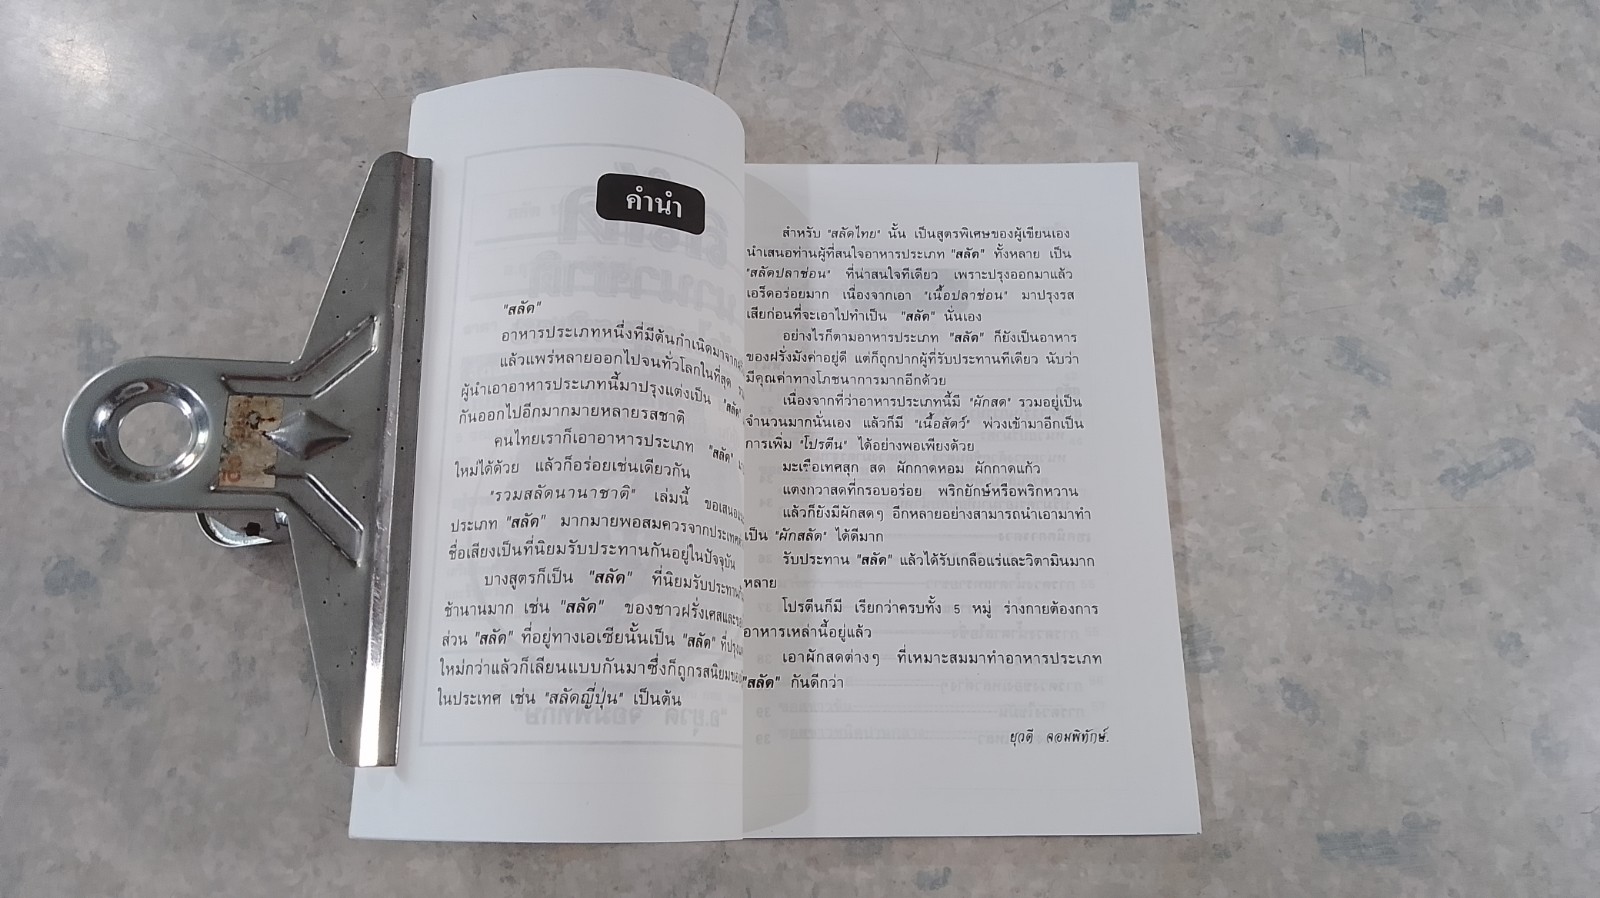 คำนำ
"สลัด"
อาหารประเภทหนึ่งที่มีต้นกำเนิดมาจาก
แล้วแพร่หลายออกไปจนทั่วโลกในที่สุด
ผู้นำเอาอาหารประเภทนี้มาปรุงแต่งเป็น "สลัด"
กันออกไปอีกมากมายหลายรสชาติ
คนไทยเราก็เอาอาหารประเภท "สลัด"
ใหม่ได้ด้วย แล้วก็อร่อยเช่นเดียวกัน
"รวมสลัดนานาชาติ" เล่มนี้ ขอเสนอ
ประเภท "สลัด" มากมายพอสมควรจากประเทศ
ชื่อเสียงเป็นที่นิยมรับประทานกันอยู่ในปัจจุบัน
บางสูตรก็เป็น "สลัด" ที่นิยมรับประทาน
ช้านานมาก เช่น "สลัด" ของชาวฝรั่งเศส
ส่วน "สลัด" ที่อยู่ทางเอเซียนั้นเป็น "สลัด" ที่ปรุง
ใหม่กว่าแล้วก็เลียนแบบกันมาซึ่งก็ถูกรสนิยม
ในประเทศ เช่น "สลัดญี่ปุ่น" เป็นต้น
สำหรับ "สลัดไทย" นั้น เป็นสูตรพิเศษของผู้เขียนเอง
นำเสนอท่านผู้ที่สนใจอาหารประเภท "สลัด" ทั้งหลาย เป็น
"สลัดปลาช่อน" ที่น่าสนใจทีเดียว เพราะปรุงออกมาแล้ว
เอร็ดอร่อยมาก เนื่องจากเอา "เนื้อปลาช่อน" มาปรุงรส
เสียก่อนที่จะเอาไปทำเป็น "สลัด" นั่นเอง
อย่างไรก็ตามอาหารประเภท "สลัด" ก็ยังเป็นอาหาร
ของฝรั่งมังค่าอยู่ดี แต่ก็ถูกปากผู้ที่รับประทานทีเดียว นับว่า
มีคุณค่าทางโภชนาการมากอีกด้วย
เนื่องจากที่ว่าอาหารประเภทนี้มี "ผักสด" รวมอยู่เป็น
จำนวนมากนั่นเอง แล้วก็มี "เนื้อสัตว์" พ่วงเข้ามาอีกเป็น
การเพิ่ม "โปรตีน" ได้อย่างพอเพียงด้วย
มะเขือเทศสุก สด ผักกาดหอม ผักกาดแก้ว
แตงกวาสดที่กรอบอร่อย พริกยักษ์หรือพริกหวาน
แล้วก็ยังมีผักสดๆ อีกหลายอย่างสามารถนำเอามาทำ
เป็น "ผักสลัด" ได้ดีมาก
รับประทาน "สลัด" แล้วได้รับเกลือแร่และวิตามินมาก
หลาย
โปรตีนก็มี เรียกว่าครบทั้ง 5 หมู่ ร่างกายต้องการ
อาหารเหล่านี้อยู่แล้ว
เอาผักสดต่างๆ ที่เหมาะสมมาทำอาหารประเภท
"สลัด" กันดีกว่า
ยุวดี จอมพิทักษ์.